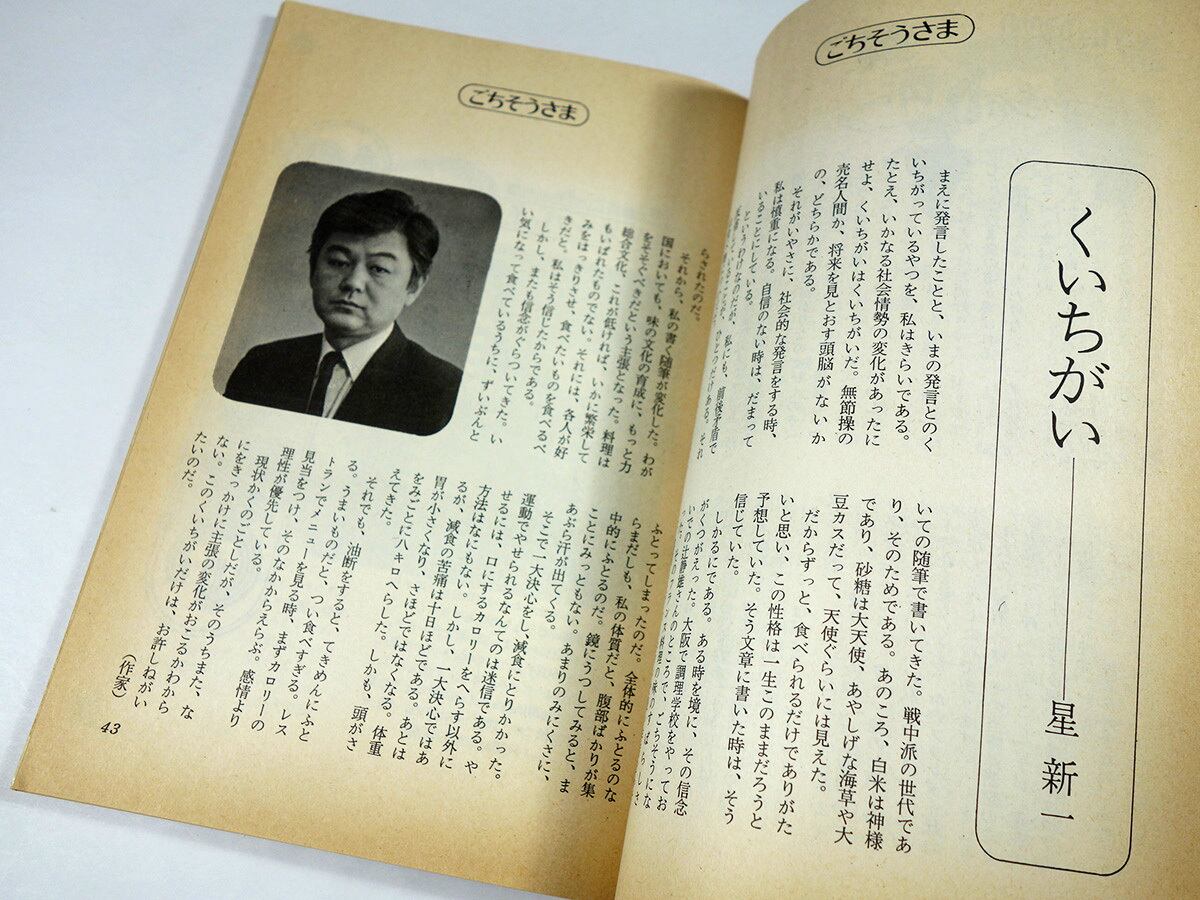 ごちそうさま
くいちがい
星新一
まえに発言したことと、いまの発言とのく
いちがっているやつを、私はきらいである。
たとえ、いかなる社会情勢の変化があったに
せよ、くいちがいはくいちがいだ。無節操の
売名人間か、将来を見とおす頭脳がないか
の、どちらかである。
それがいやさに、社会的な発言をする時、
私は慎重になる。自信のない時は、だまって
いることにしている。
というわけなのだが、私にも、前後矛盾で
ひとつだけある。それ
いての随筆で書いてきた。戦中派の世代であ
り、そのためである。あのころ、白米は神様
であり、砂糖は大天使、あやしげな海草や大
豆カスだって、天使ぐらいには見えた。
だからずっと、食べられるだけでありがた
いと思い、この性格は一生このままだろうと
予想していた。そう文章に書いた時は、そう
信じていた。
しかるにである。ある時を境に、その信念
がくつがえった。大阪で調理学校をやってお
いでの辻静雄さんのところで、ごちそうにな
フランス料理の味のすばらしさ
ごちそうさま
らされたのだ。
それから、私の書く随筆が変化した。わが
国においても、味の文化の育成に、もっと力
をそそぐべきだという主張となった。料理は
総合文化、これが低ければ、いかに繁栄して
もいばれたものでない。それには、各人が好
みをはっきりさせ、食べたいものを食べるべ
きだと。私はそう信じたからである。
しかし、またも信念がぐらついてきた。い
い気になって食べているうちに、ずいぶんと
ふとってしまったのだ。全体的にふとるのな
らまだしも、私の体質だと、腹部ばかりが集
中的にふとるのだ。鏡にうつしてみると、ま
ことにみっともない。あまりのみにくさに、
あぶら汗が出てくる。
そこで一大決心をし、減食にとりかかった。
運動でやせられるなんてのは迷信である。や
せるには、口にするカロリーをへらす以外に
方法はなにもない。しかし、一大決心ではあ
るが、減食の苦痛は十日ほどである。あとは
胃が小さくなり、さほどではなくなる。体重
をみごとに八キロへらした。しかも、頭がさ
えてきた。
それでも、油断をすると、てきめんにふと
る。うまいものだと、つい食べすぎる。レス
トランでメニューを見る時、まずカロリーの
見当をつけ、そのなかからえらぶ。感情より
理性が優先している。
現状かくのごとしだが、そのうちまた、な
にをきっかけに主張の変化がおこるかわから
ない。このくいちがいだけは、お許しねがい
たいのだ。
（作家）
43